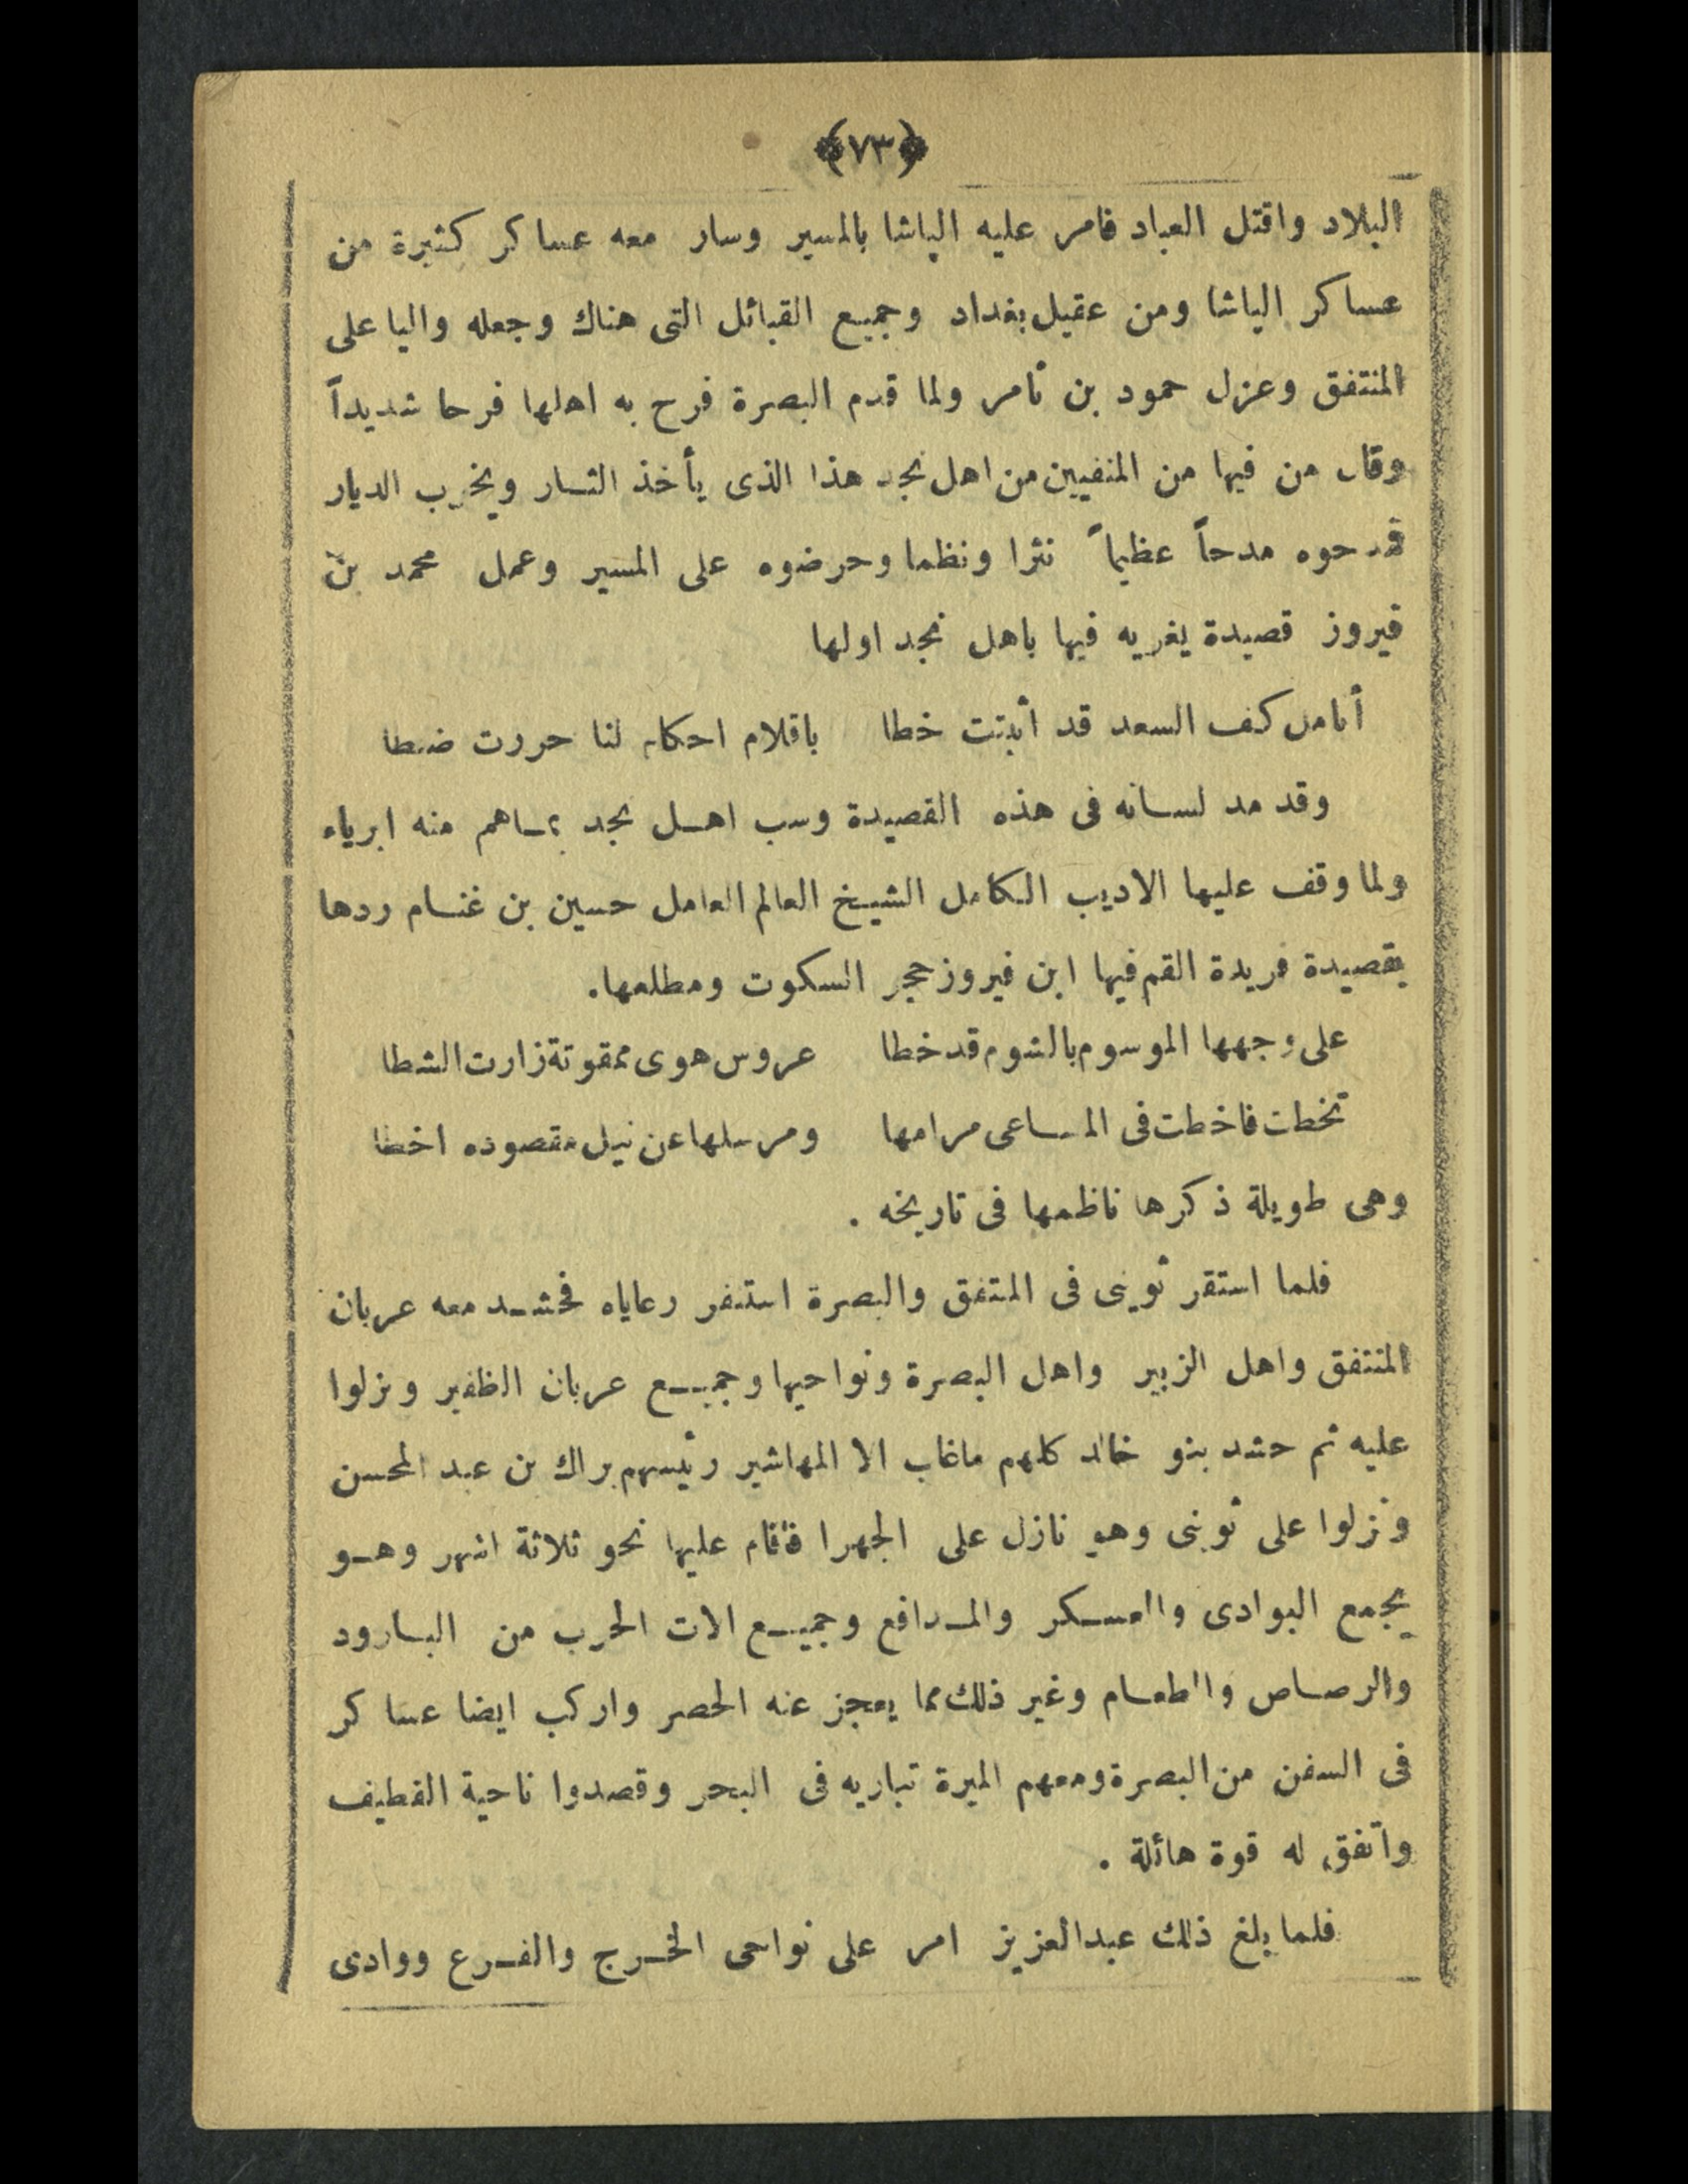 ﴿٧٣﴾
البلاد واقتل العباد فامر عليه الباشا بالمسير وسار معه عساكر كثيرة من
عساكر الباشا ومن عقيل بغداد وجميع القبائل التى هناك وجعله واليا على
المنتفق وعزل حمود بن ثامر ولما قدم البصرة فرح به اهلها فرحا شديداً
وقال من فيها من المنفيين من اهل نجد هذا الذى يأخذ الثار ويخرب الديار
فمدحوه مدحاً عظيماً نثرا ونظما وحرضوه على المسير وعمل محمد بن
فيروز قصيدة يغريه فيها باهل نجد اولها
أنامل كف السعد قد أثبتت خطا باقلام احكام لنا حررت ضبطا
وقد مد لسانه فى هذه القصيدة وسب اهل نجد بماهم منه ابرياء
ولما وقف عليها الاديب الكامل الشيخ العالم العامل حسين بن غنام ردها
بقصيدة فريدة القم فيها ابن فيروز حجر السكوت ومطلعها.
على وجهها الموسوم بالشوم قد خطا عروس هوى ممقوتة زارت الشطا
تخطت فاخطت فى المساعى مرامها ومرسلها عن نيل مقصوده اخطا
وهى طويلة ذكرها ناظمها فى تاريخه .
فلما استقر ثوينى فى المتفق والبصرة استنفر رعاياه فحشد معه عربان
المنتفق واهل الزبير واهل البصرة ونواحيها وجميع عربان الظفير ونزلوا
عليه ثم حشد بنو خالد كلهم ماغاب الا المهاشير رئيسهم براك بن عبد المحسن
ونزلوا على ثوينى وهو نازل على الجهرا فأقام عليها نحو ثلاثة اشهر وهو
يجمع البوادى والعسكر والمدافع وجميع الات الحرب من البارود
والرصاص والطعام وغير ذلك مما يعجز عنه الحصر واركب ايضا عساكر
فى السفن من البصرة ومعهم الميرة تباريه فى البحر وقصدوا ناحية القطيف
واتفق له قوة هائلة .
فلما بلغ ذلك عبدالعزيز امر على نواحى الخرج والفرع ووادى